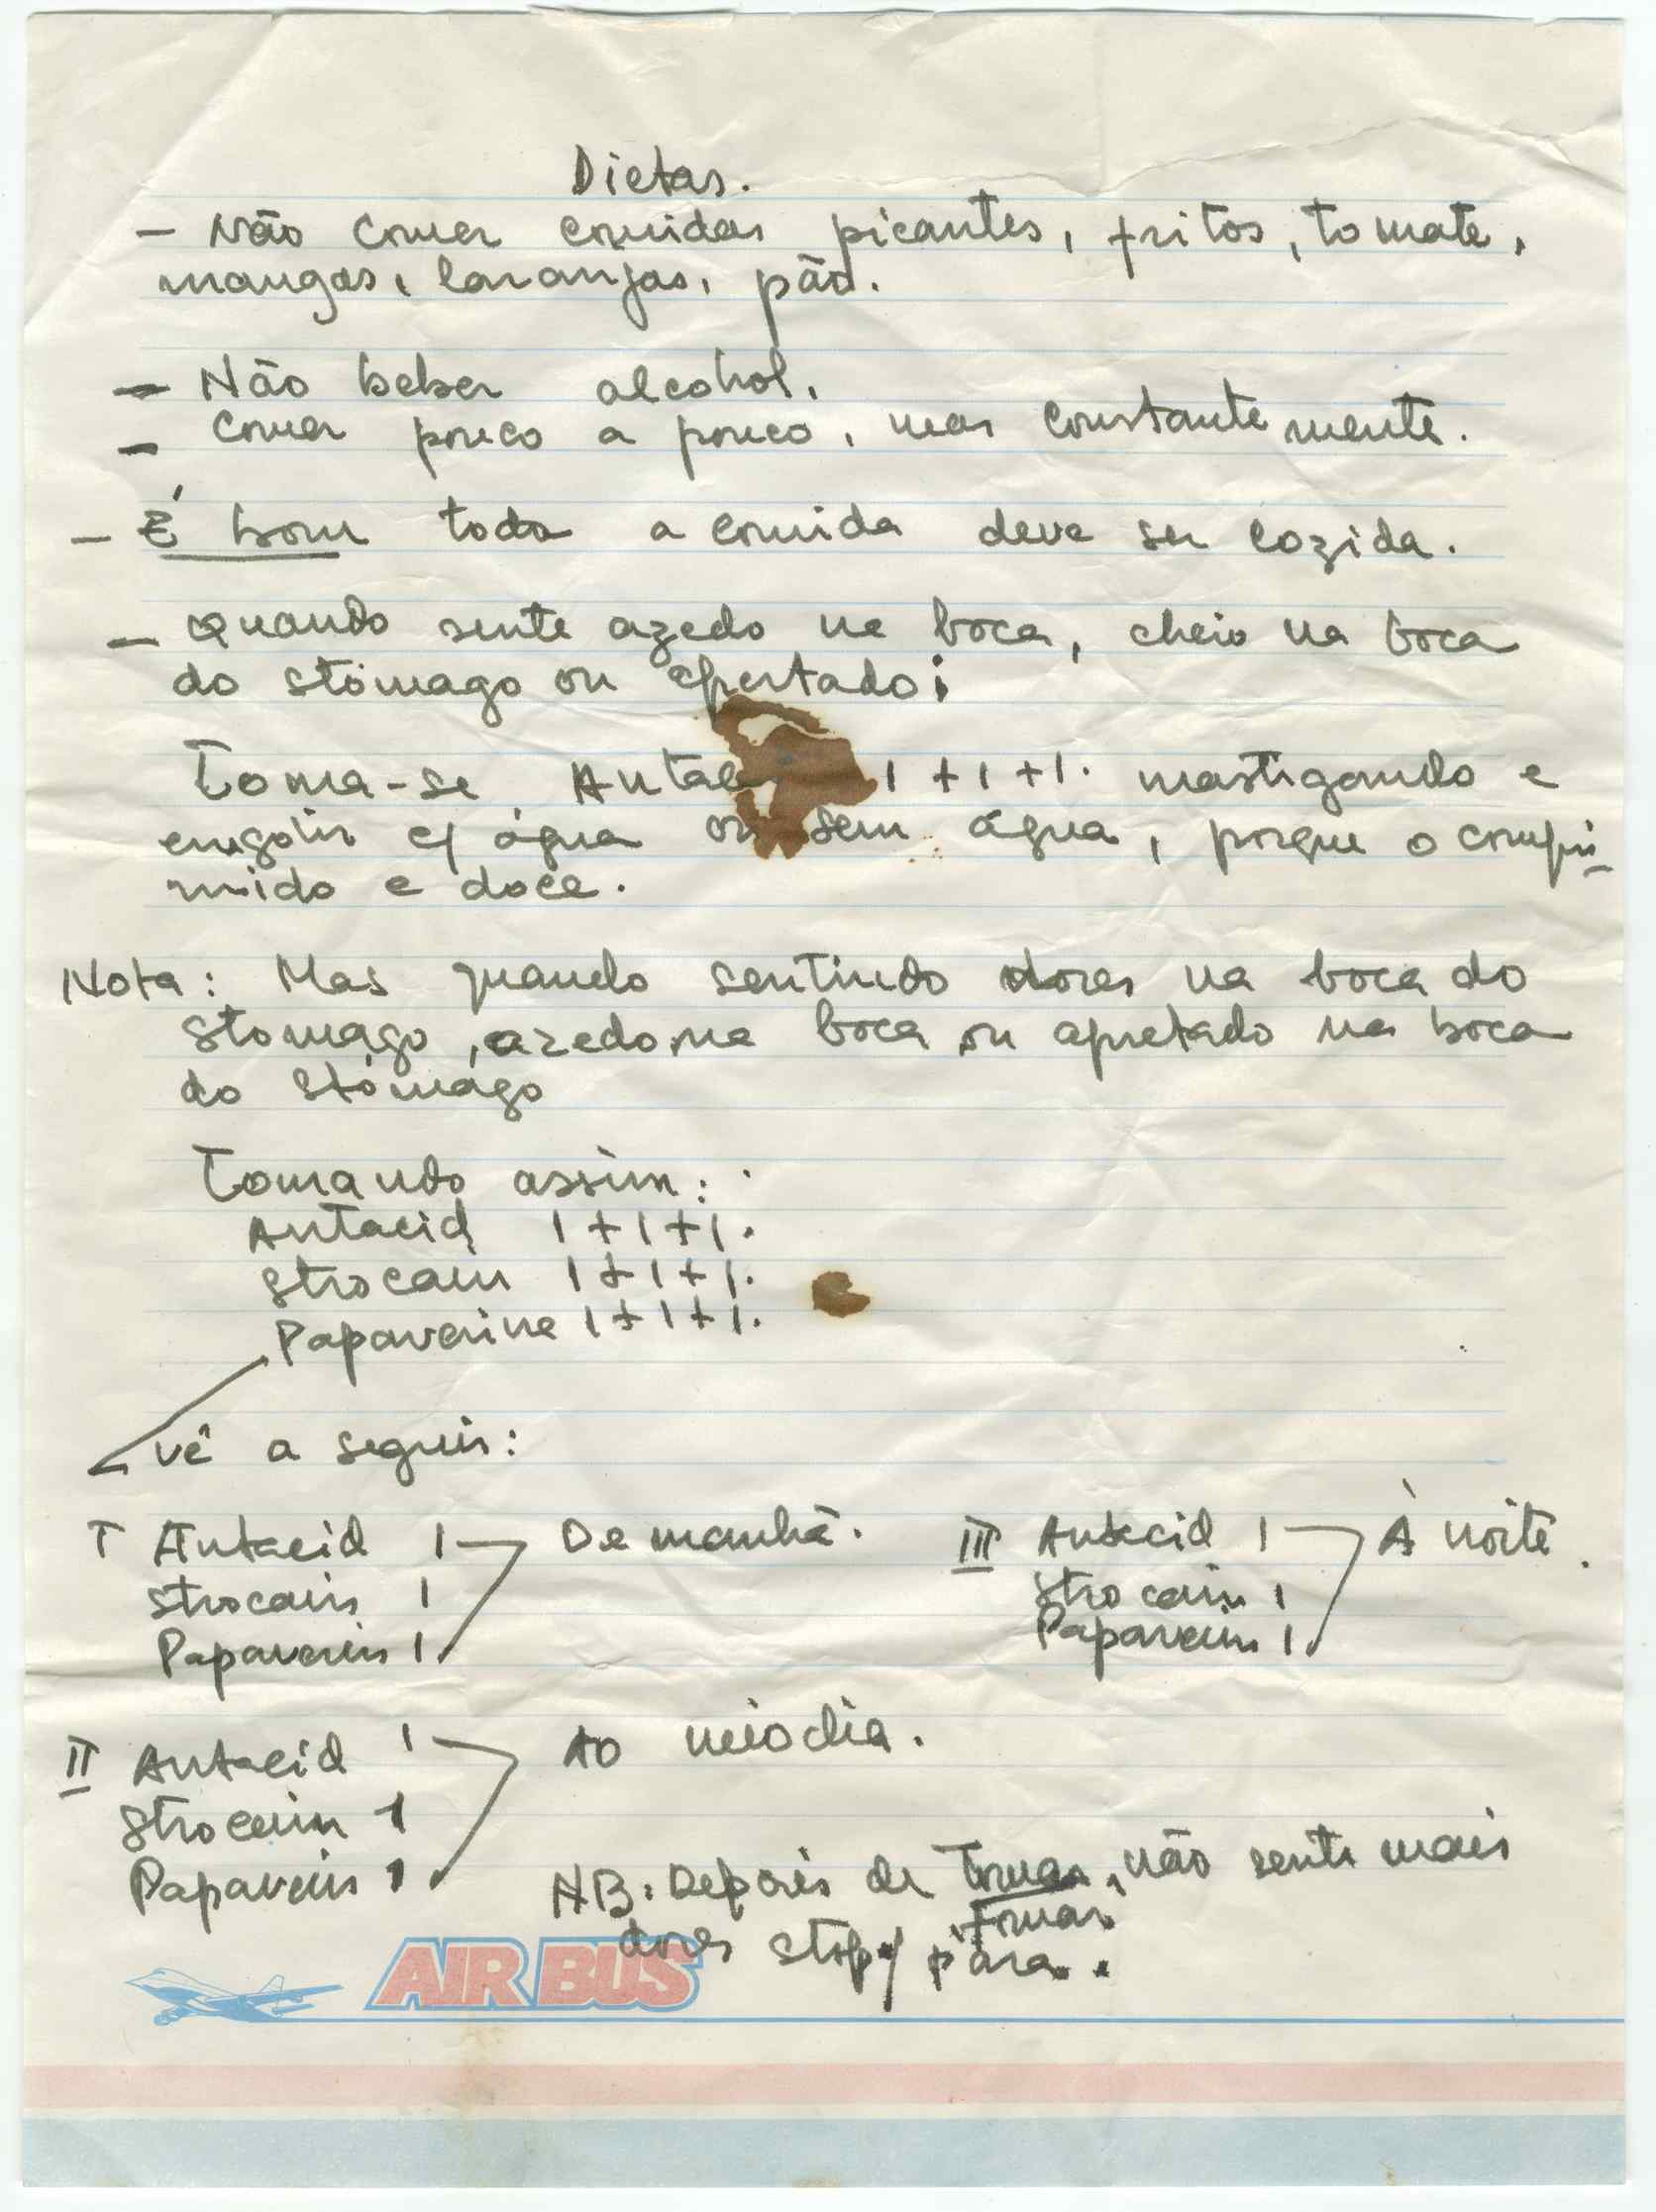 Dietas.
- Não comer comidas picantes, fritos, tomate,
mangas, laranjas, pão.
- Não beber alcohol,
- Comer pouco a pouco, mas constantemente.
- É bom toda a comida deve ser cozida.
- Quando sente azedo na boca, cheio na boca
do stômago ou apertado;
Toma-se 1+1+1. mastigando e
engolir c/ água ou sem água, porque o compri-
mido e doce.
Nota: Mas quando sentindo dores na boca do
stomago, azedo na boca ou apretado na boca
do stómago
Tomando assim:
Antacid 1+1+1.
Strocain 1+1+1.
Papaverine 1+1+1.
vê a seguir:
I Antacid 1 De manhã.
Strocain 1
Papaverin 1
III Antacid 1 À noite.
Strocain 1
Papaverin 1
II Antacid 1 Ao meio dia.
Strocain 1
Papaverin 1
NB: Depois de tomar, não sente mais
tomar
dores stop/ pára.
AIR BUS